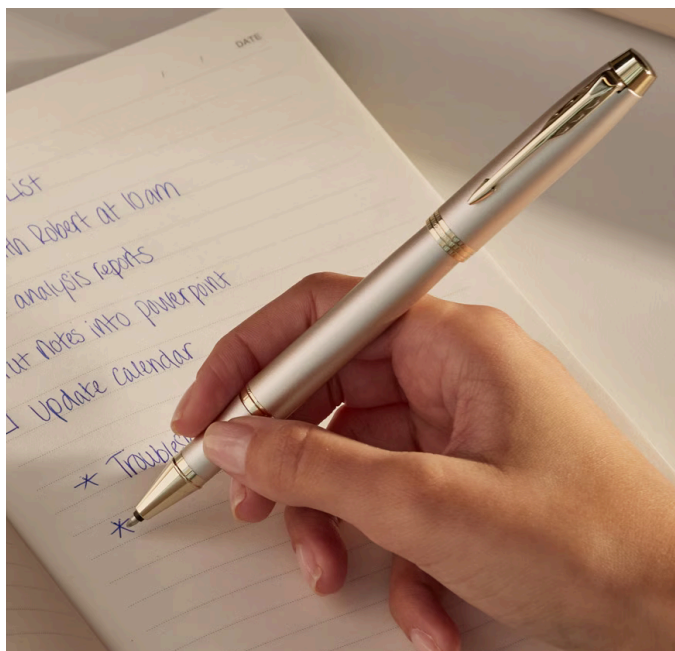 DATE
/ /
List
Robert at 10am
analysis reports
notes into powerpoint
update calendar
*
*